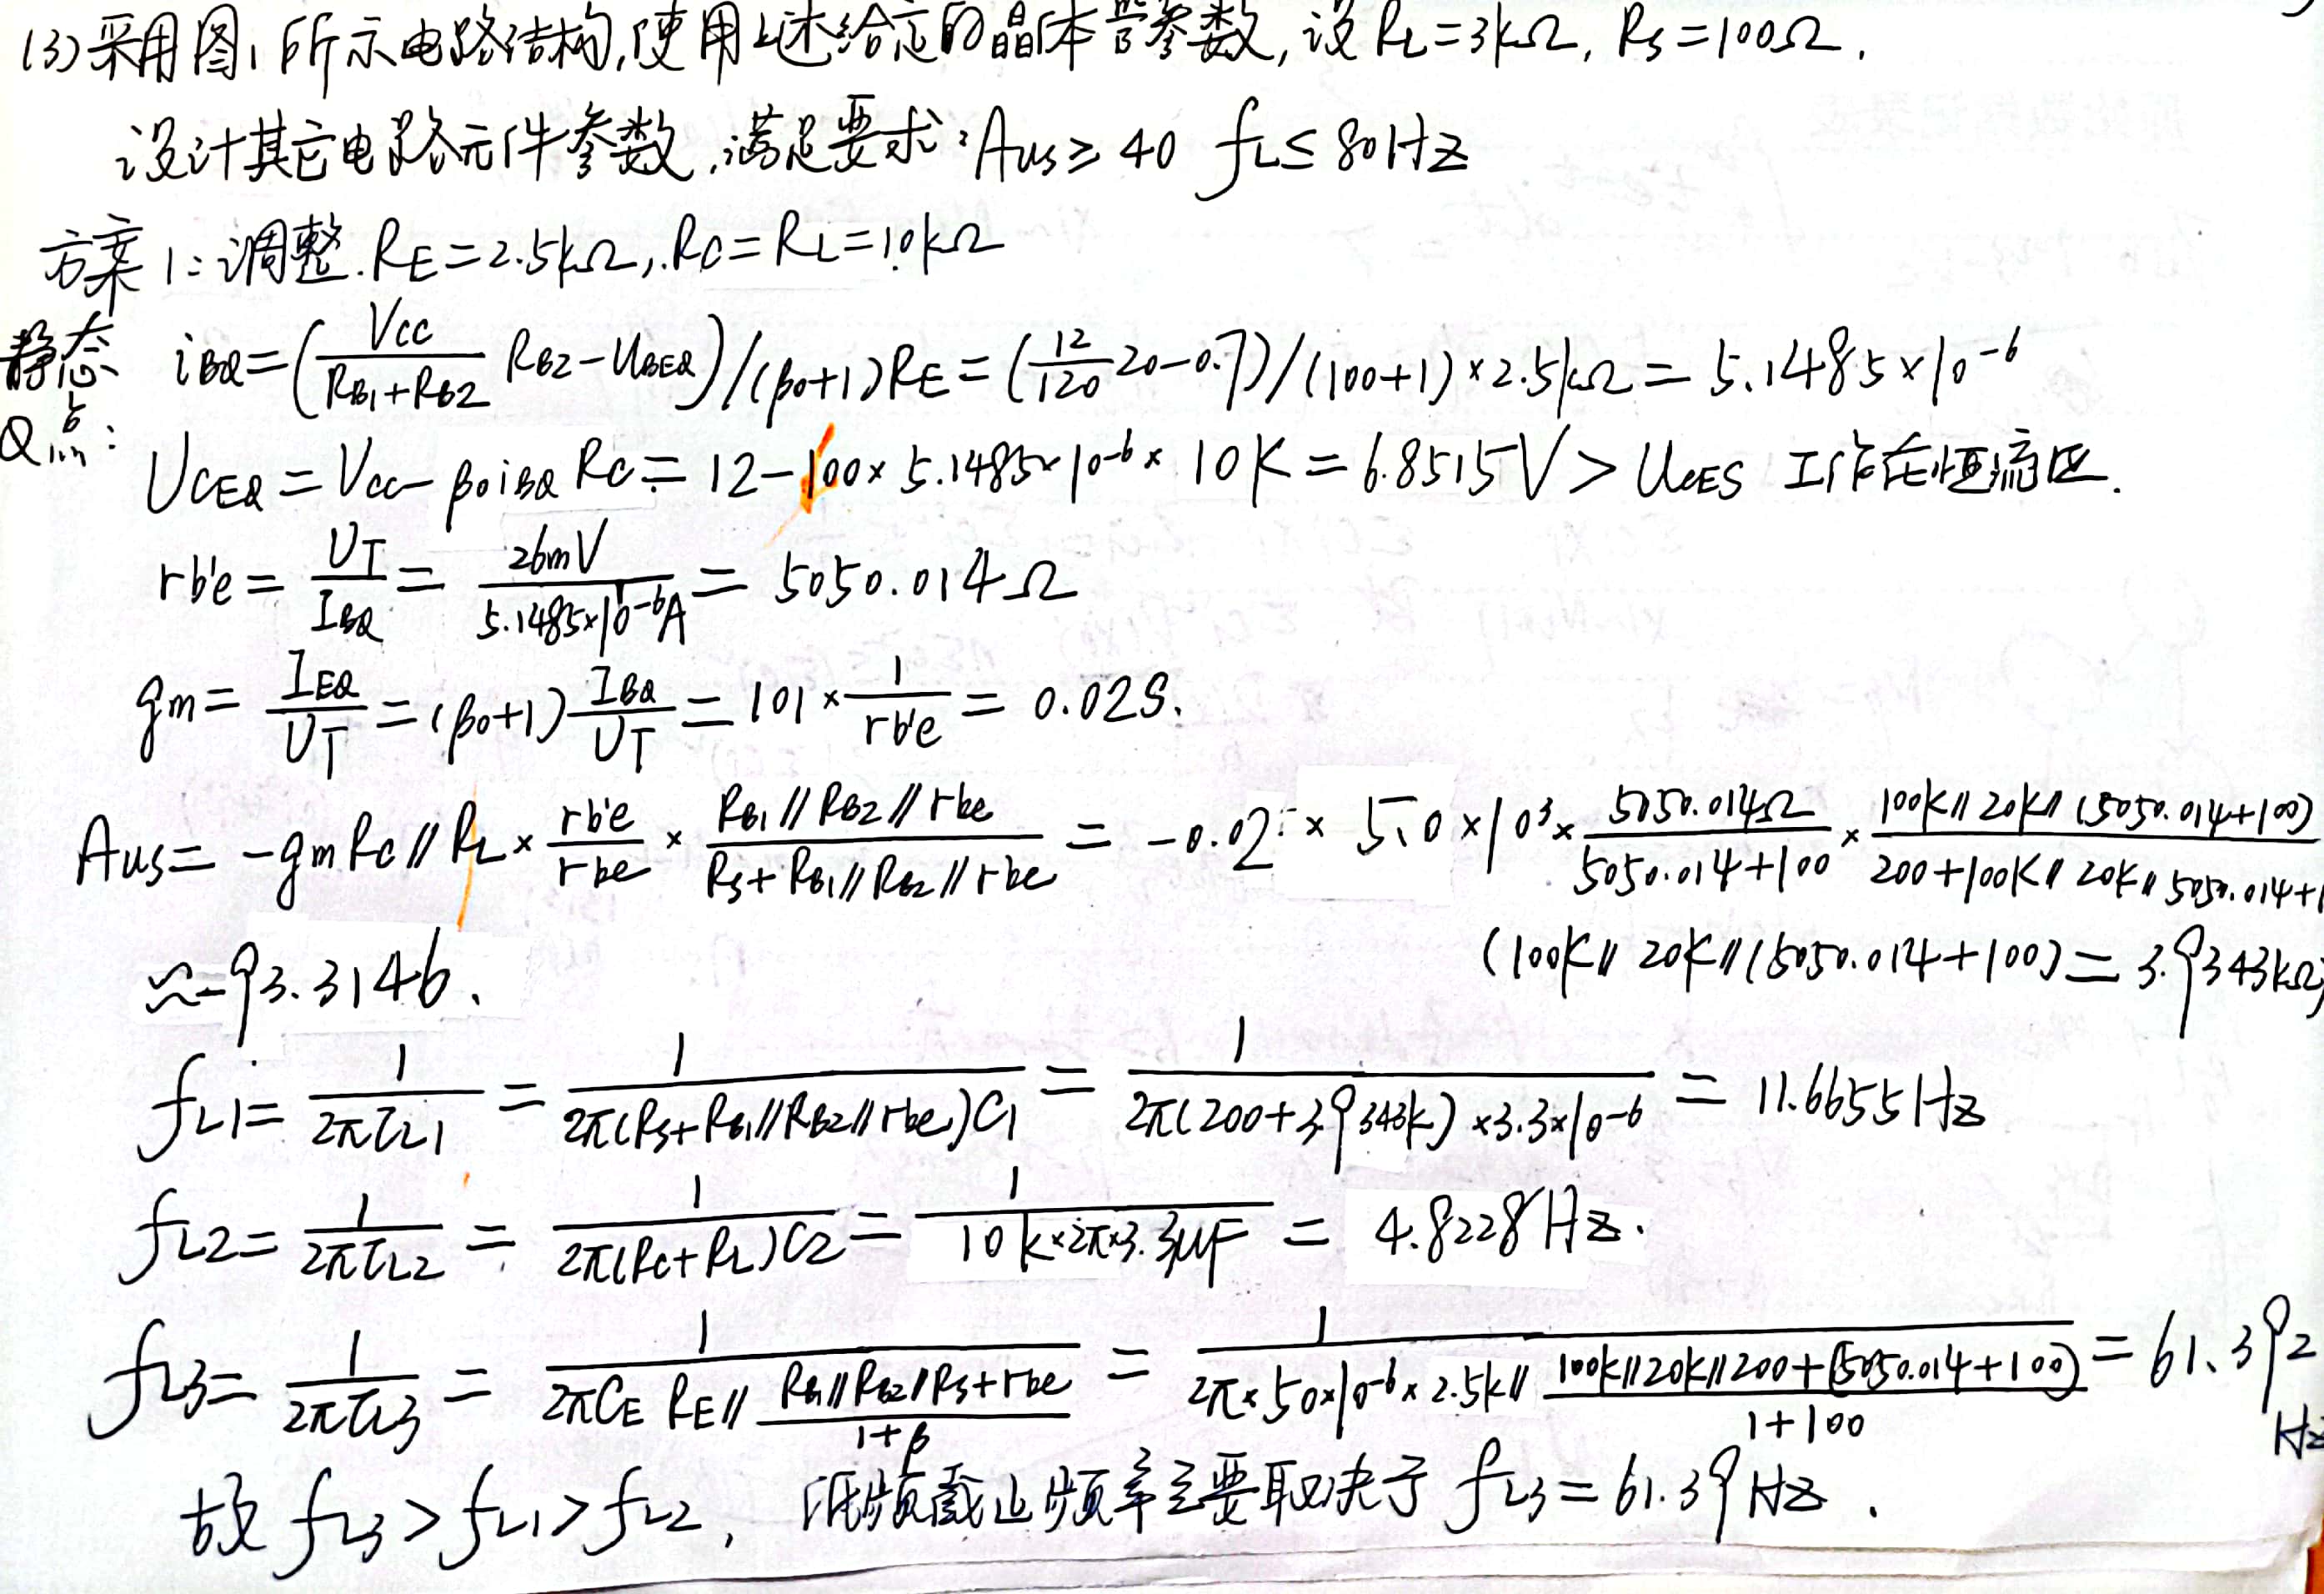 (3)采用图1所示电路结构,使用上述给定的晶体管参数,设RL=3kΩ, Rs=100Ω.
设计其它电路元件参数,满足要求:Aus≥40 fL≤80Hz
方案1:调整.RE=2.5kΩ,.RC=RL=10kΩ
静态Q点: iBQ=(Vcc/(RB1+RB2) RB2-UBEQ)/(β0+1)RE=(12/120 20-0.7)/(100+1)×2.5kΩ=5.1485×10⁻⁶
UCEQ=Vcc-β0iBQRC=12-100×5.1485×10⁻⁶×10K=6.8515V>UCES 工作在恒流区.
rb'e=UT/IBQ=26mV/5.1485×10⁻⁶A=5050.014Ω
gm=IEQ/UT=(β0+1)IBQ/UT=101×1/rb'e=0.02S.
Aus=-gmRC//RL×rb'e/rbe×RB1//RB2//rbe/(Rs+RB1//RB2//rbe)=-0.02×5.0×10³×5050.014Ω/(5050.014+100)×100K//20K//(5050.014+100)/(200+100K//20K//5050.014+1
(100K//20K//(5050.014+100)=3.9343kΩ)
≈-93.3146.
fL1=1/2πτL1=1/2π(Rs+RB1//RB2//rbe)C1=1/2π(200+3.9343k)×3.3×10⁻⁶=11.6655Hz
fL2=1/2πτL2=1/2π(RC+RL)C2=1/10k×2π×3.3μF=4.8228Hz.
fL3=1/2πτL3=1/2πCE RE//(RB1//RB2//Rs+rbe)/(1+β)=1/2π×50×10⁻⁶×2.5k//(100k//20k//200+(5050.014+100))/(1+100)=61.392Hz
故fL3>fL1>fL2, 低频截止频率主要取决于fL3=61.39Hz.